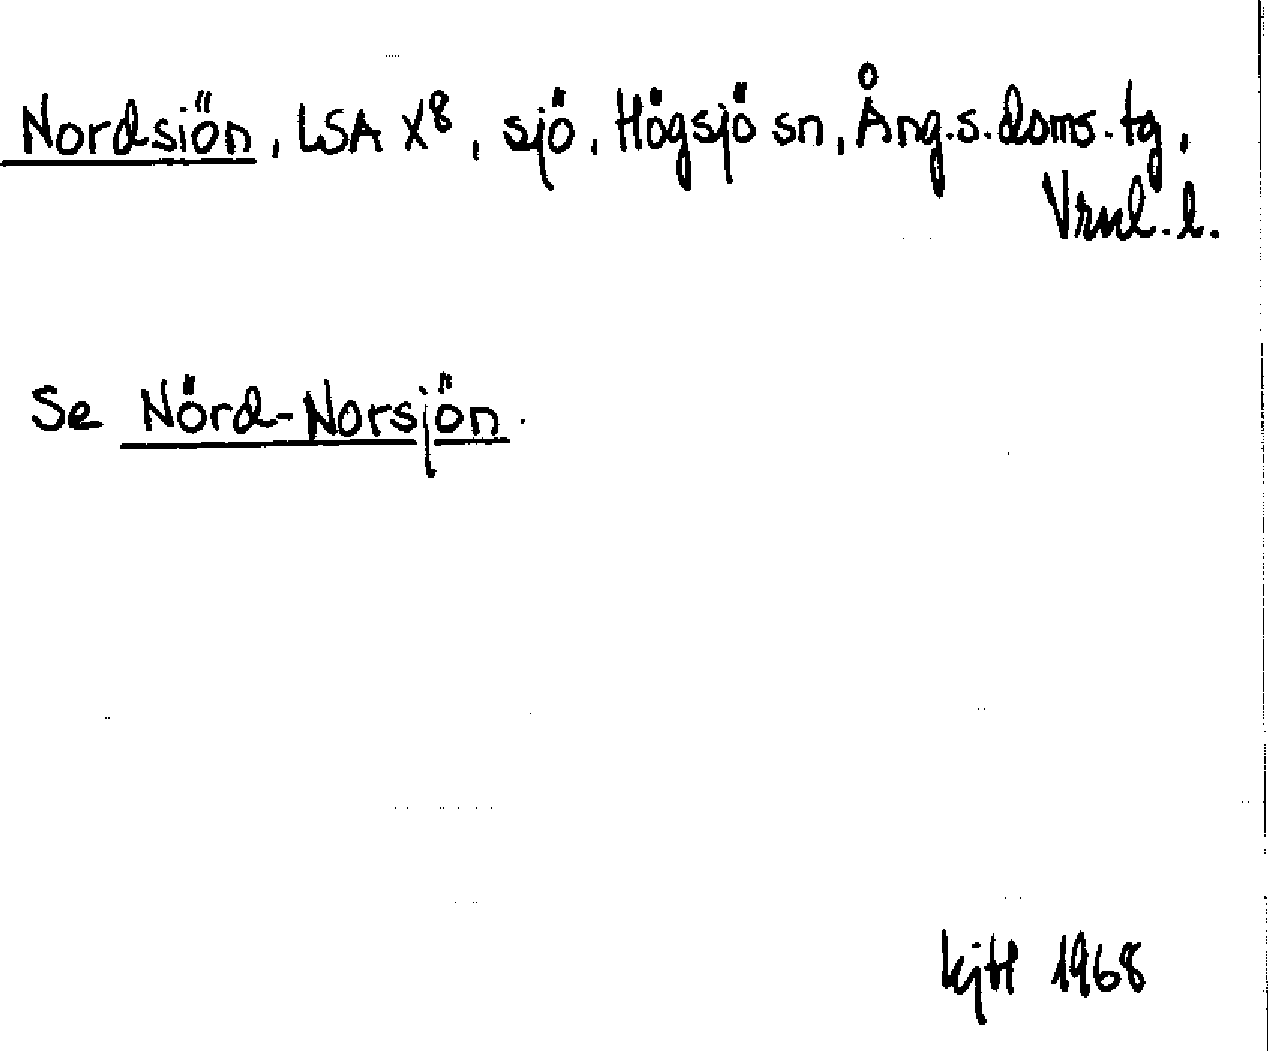 Nordsiön, LSA X8, sjö, Högsjö sn, Ång.s.doms.tg,
Vrnl.l.
Se Nörd-Norsjön.
KjH 1968